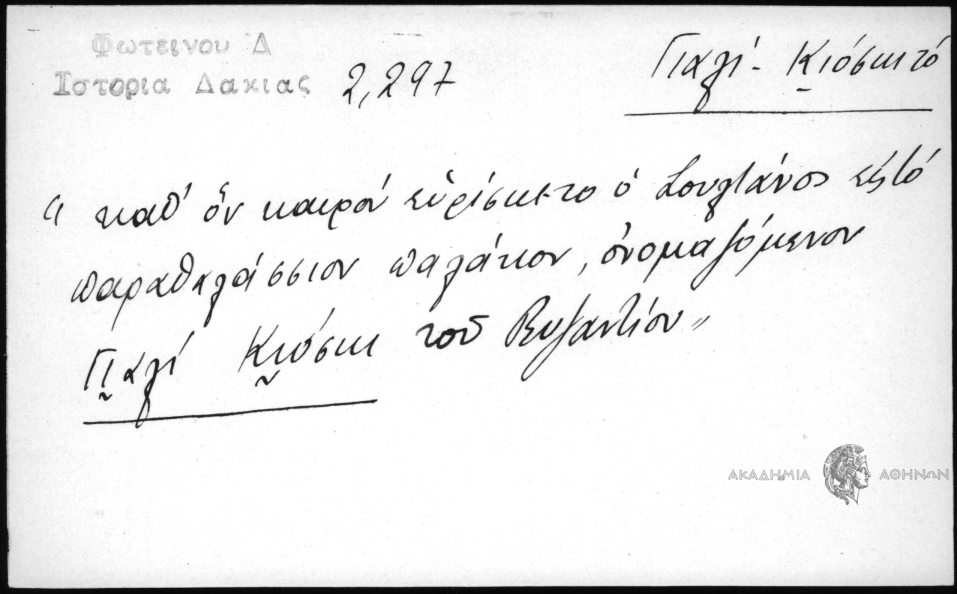 Φωτεινου Δ
Ιστορια Δακιας 2,297
Γιαλί - Κιόσκι τό
“ καθ' ὅν καιρόν εὑρίσκετο ὁ Σουλτάνος εἰς τό
παραθαλάσσιον παλάτιον, ὀνομαζόμενον
Γιαλί Κιόσκι τοῦ Βυζαντίου"
ΑΚΑΔΗΜΙΑ ΑΘΗΝΩΝ